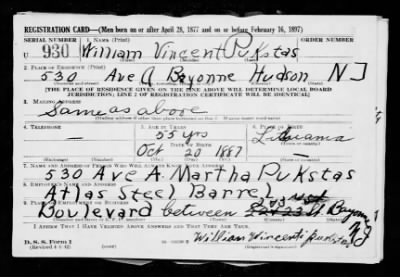 REGISTRATION CARD—(Men born on or after April 28, 1877 and on or before February 16, 1897)
SERIAL NUMBER 1. NAME (Print)
U 930 William Vincent Pukstas
(First) (Middle) (Last)
2. PLACE OF RESIDENCE (Print)
530 Ave A Bayonne Hudson NJ
[THE PLACE OF RESIDENCE GIVEN ON THE LINE ABOVE WILL DETERMINE LOCAL BOARD
JURISDICTION; LINE 2 OF REGISTRATION CERTIFICATE WILL BE IDENTICAL]
3. MAILING ADDRESS
Same as above
4. TELEPHONE 5. AGE IN YEARS 6. PLACE OF BIRTH
— 55 yrs
DATE OF BIRTH
Oct 20 1887
7. NAME AND ADDRESS OF PERSON WHO WILL ALWAYS KNOW YOUR ADDRESS
530 Ave A Martha Pukstas
8. EMPLOYER'S NAME AND ADDRESS
Atlas Steel Barrel
9. PLACE OF EMPLOYMENT OR BUSINESS
Boulevard between Bayonne NJ
I AFFIRM THAT I HAVE VERIFIED ABOVE ANSWERS AND THAT THEY ARE TRUE.
D. S. S. Form 1
(Revised 4-1-42) (over) William Vincent Pukstas